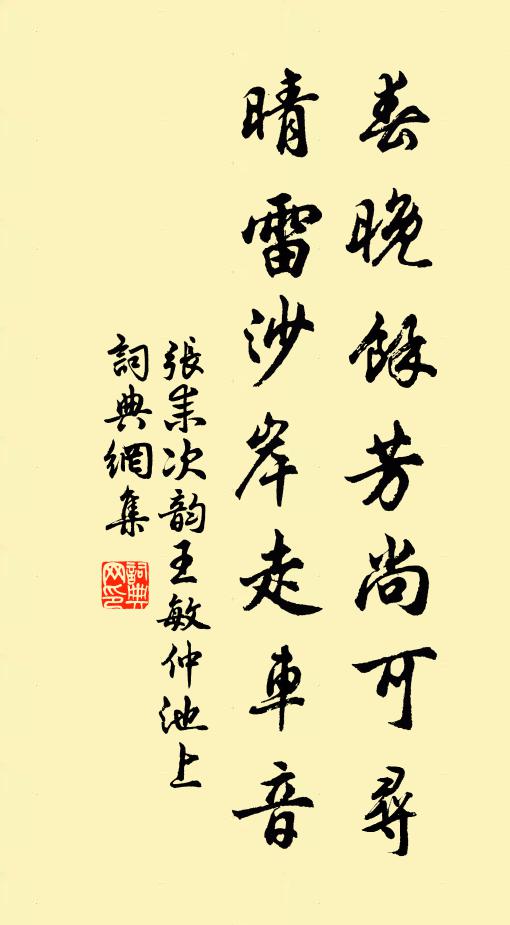 春晚餘芳尚可尋
晴雷沙岸走車音
張耒次韵王敏仲池上
詞典網集
詞典
网印